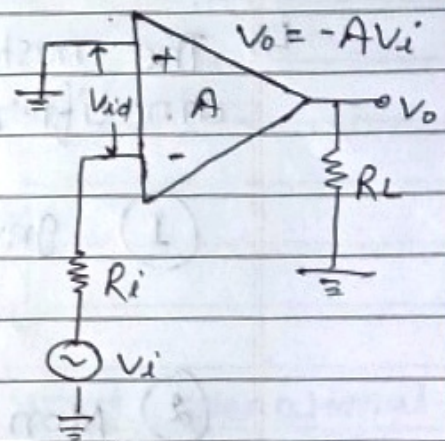 Vo = -AVi
+
Vid
A
Vo
-
RL
Ri
Vi